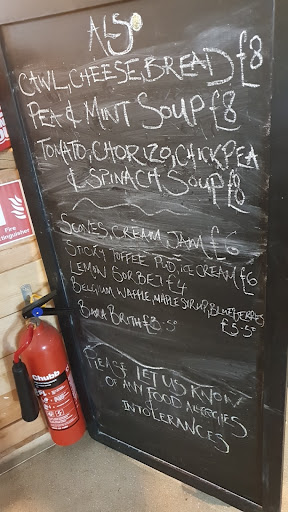 ALSO
CAWL, CHEESE, BREAD £8
PEA & MINT SOUP £8
TOMATO, CHORIZO, CHICKPEA
& SPINACH SOUP £8
SCONES, CREAM, JAM £6
STICKY TOFFEE PUD, ICE CREAM £6
LEMON SORBET £4
BELGIUM WAFFLE, MAPLE SYRUP, BLUEBERRIES
£5.50
BARA BRITH £3.50
PLEASE LET US KNOW
OF ANY FOOD ALLERGIES
INTOLERANCES
Fire
extinguisher
Chubb